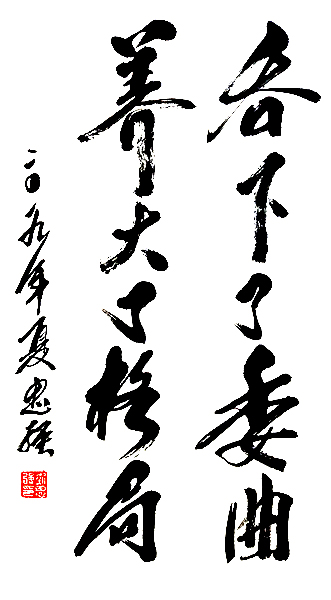 吞下了委曲
养大了格局
二〇九年夏